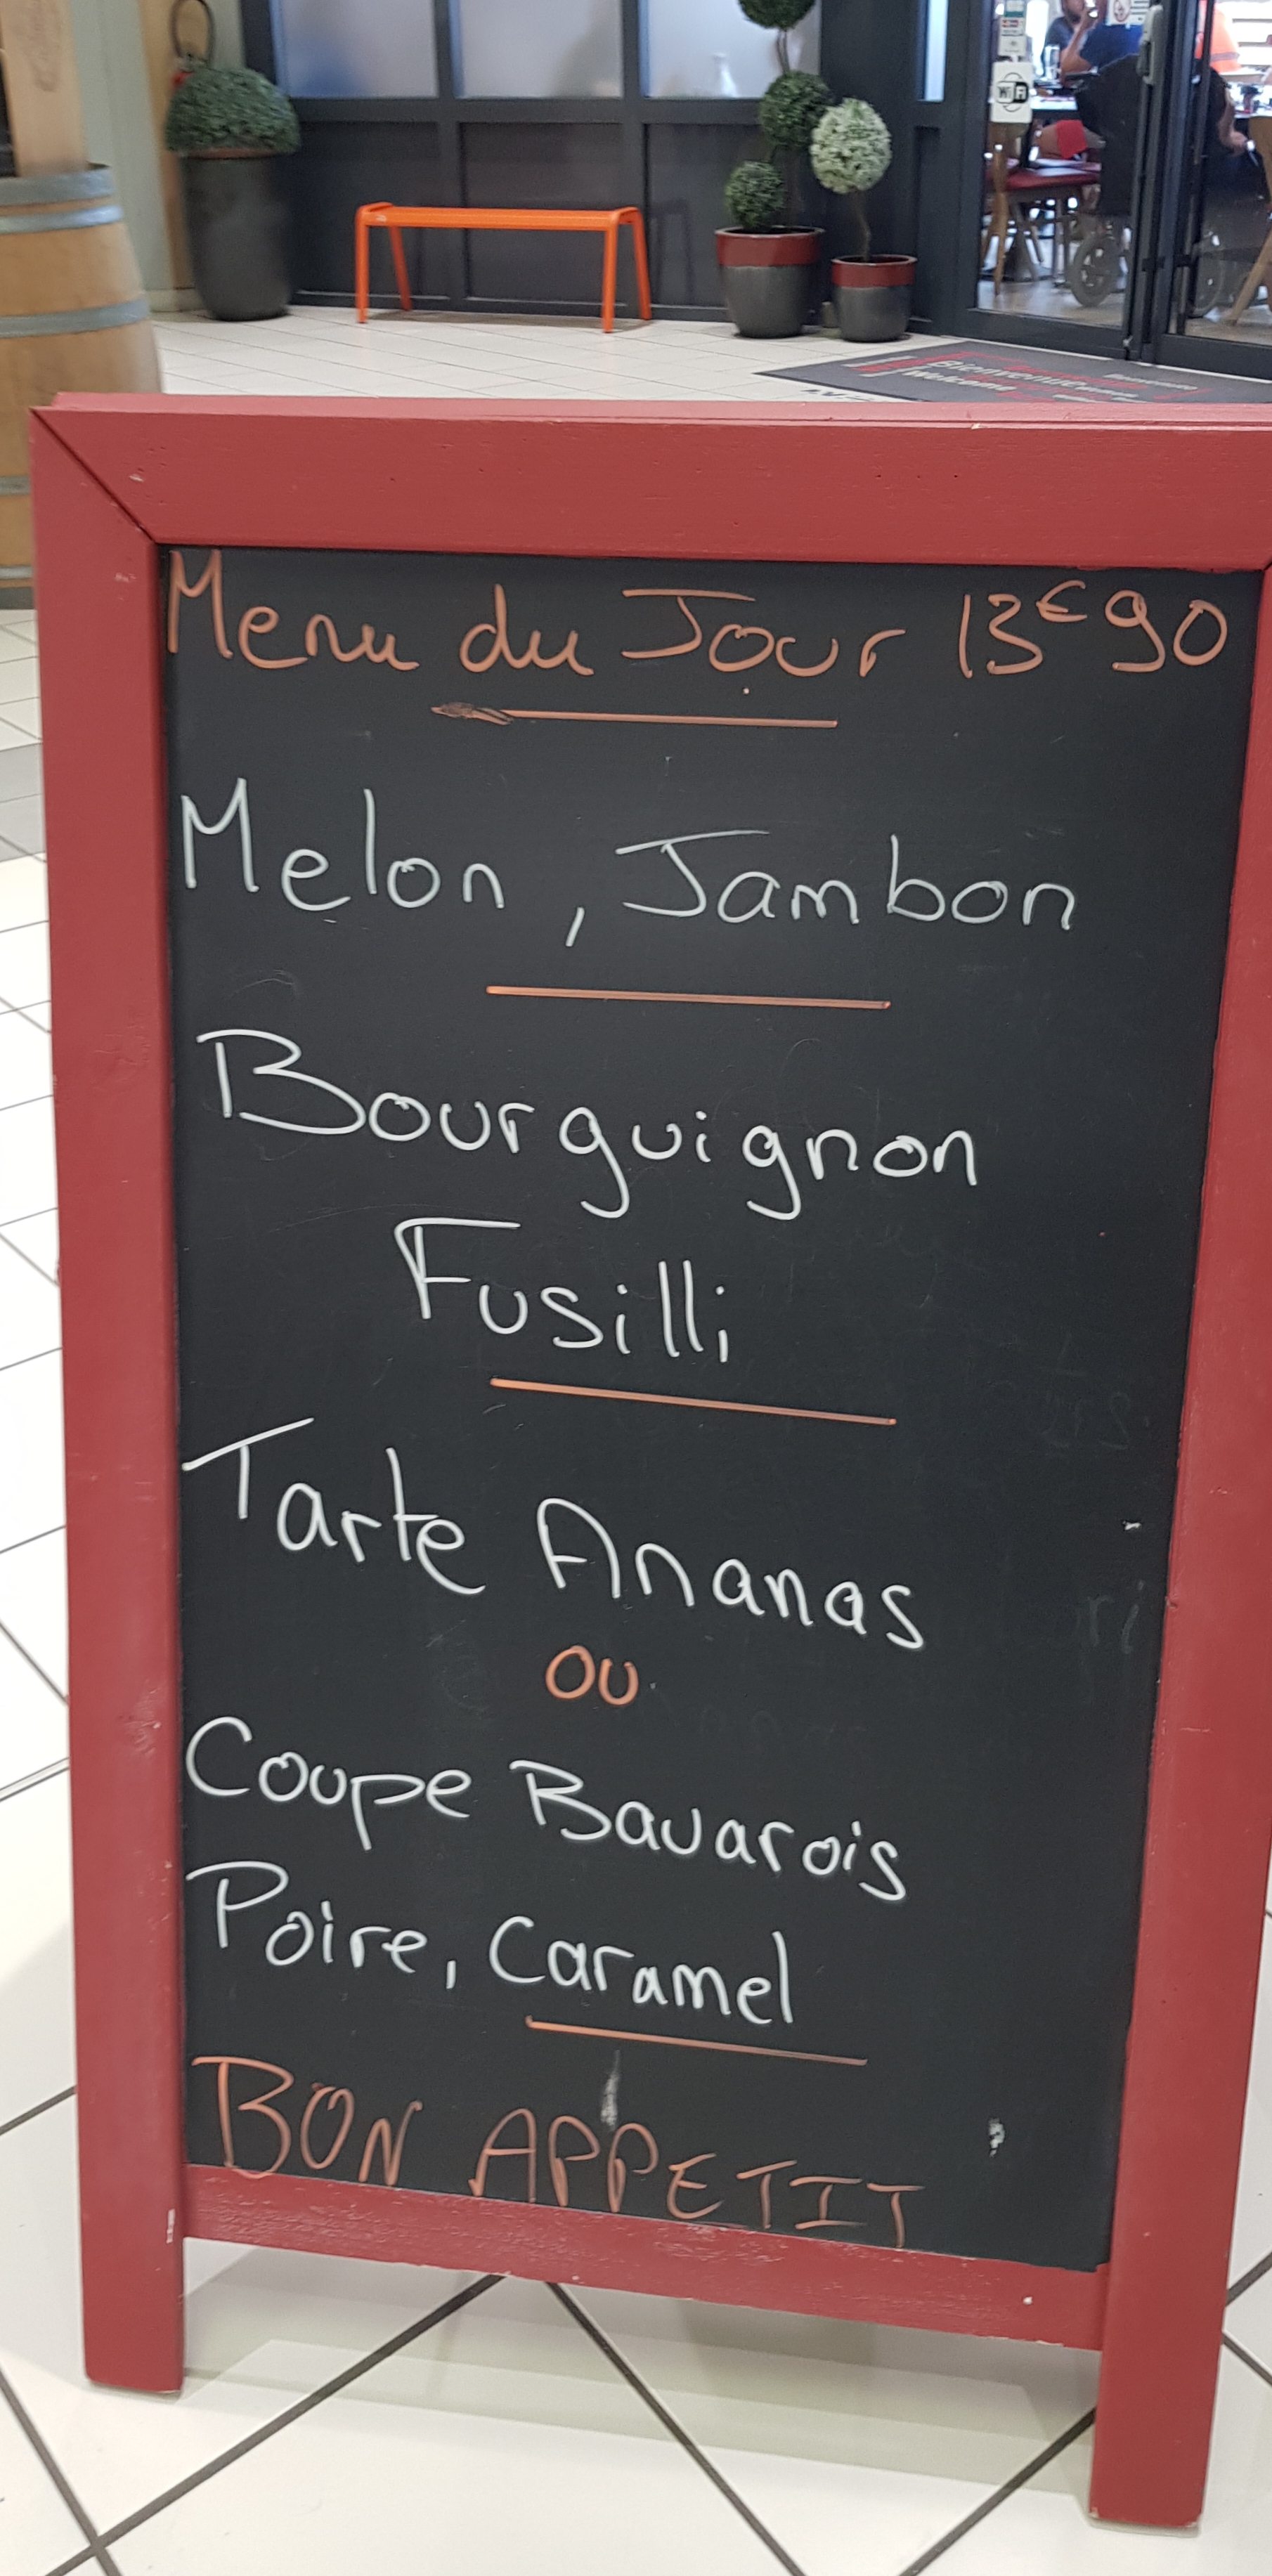 WiFi
Bienvenue
Welcome
Menu du Jour 13€90
Melon, Jambon
Bourguignon
Fusilli
Tarte Ananas
ou
Coupe Bavarois
Poire, Caramel
BON APPETIT